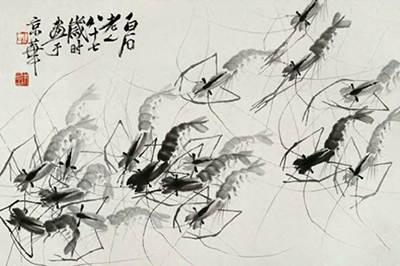 白石
老人
八十七
歲時
畫于
京華